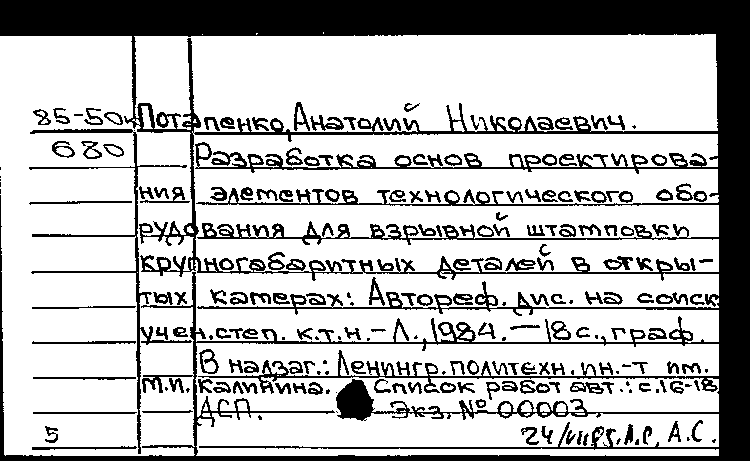 85-50к Потапенко, Анатолий Николаевич.
680 Разработка основ проектирова-
ния элементов технологического обо-
рудования для взрывной штамповки
крупногабаритных деталей в откры-
тых камерах: Автореф. дис. на соиск
учен. степ. к.т.н. - Л., 1984. - 18 с., граф.
В надзаг.: Ленингр. политехн. ин.-т им.
М.И. Калинина. Список работ авт.: с.16-18
ДСП. Экз. № 00003.
5 А.С.